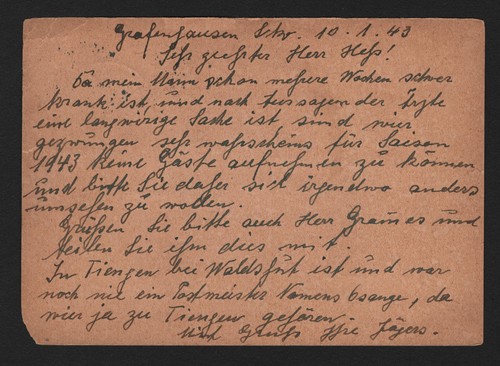 Grafenhausen Schw. 10.1.43
Sehr geehrter Herr Hess!
Da mein Mann schon mehrere Wochen schwer
krank ist, und nach Aussagen der Ärzte
eine langwirige Sache ist sind wir
gezwungen sehr wahrscheins für Saison
1943 keine Gäste aufnehmen zu können
und bitte Sie daher sich irgendwo anders
umsehen zu wollen.
Grüßen Sie bitte auch Herr und
teilen Sie ihm dies mit.
In Tiengen bei Waldshut ist und war
noch nie ein Postmeister Namens Osange, da
wier ja zu Tiengen gehören.
Mit Gruß Ihre Jägers.